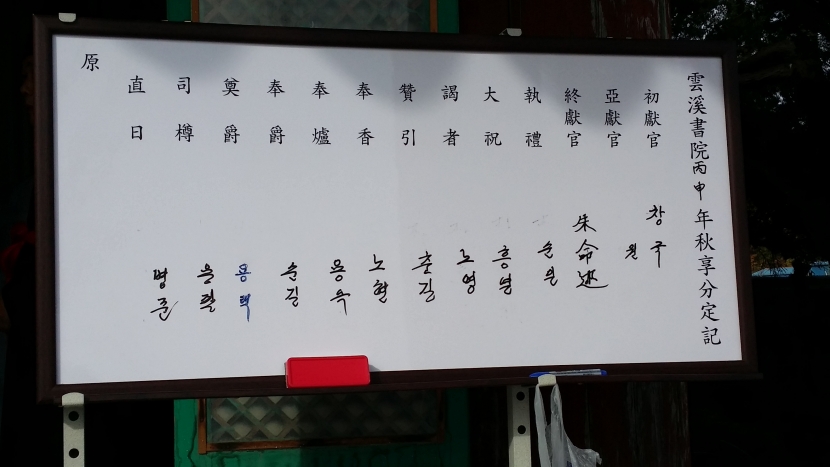 雲溪書院丙申年秋享分定記
初獻官 창국
亞獻官 원
終獻官 朱命述
執禮 순원
大祝
謁者 노영
贊引
奉香 노현
奉爐 용욱
奉爵 순길
奠爵 용택
司樽
直日 병준
原